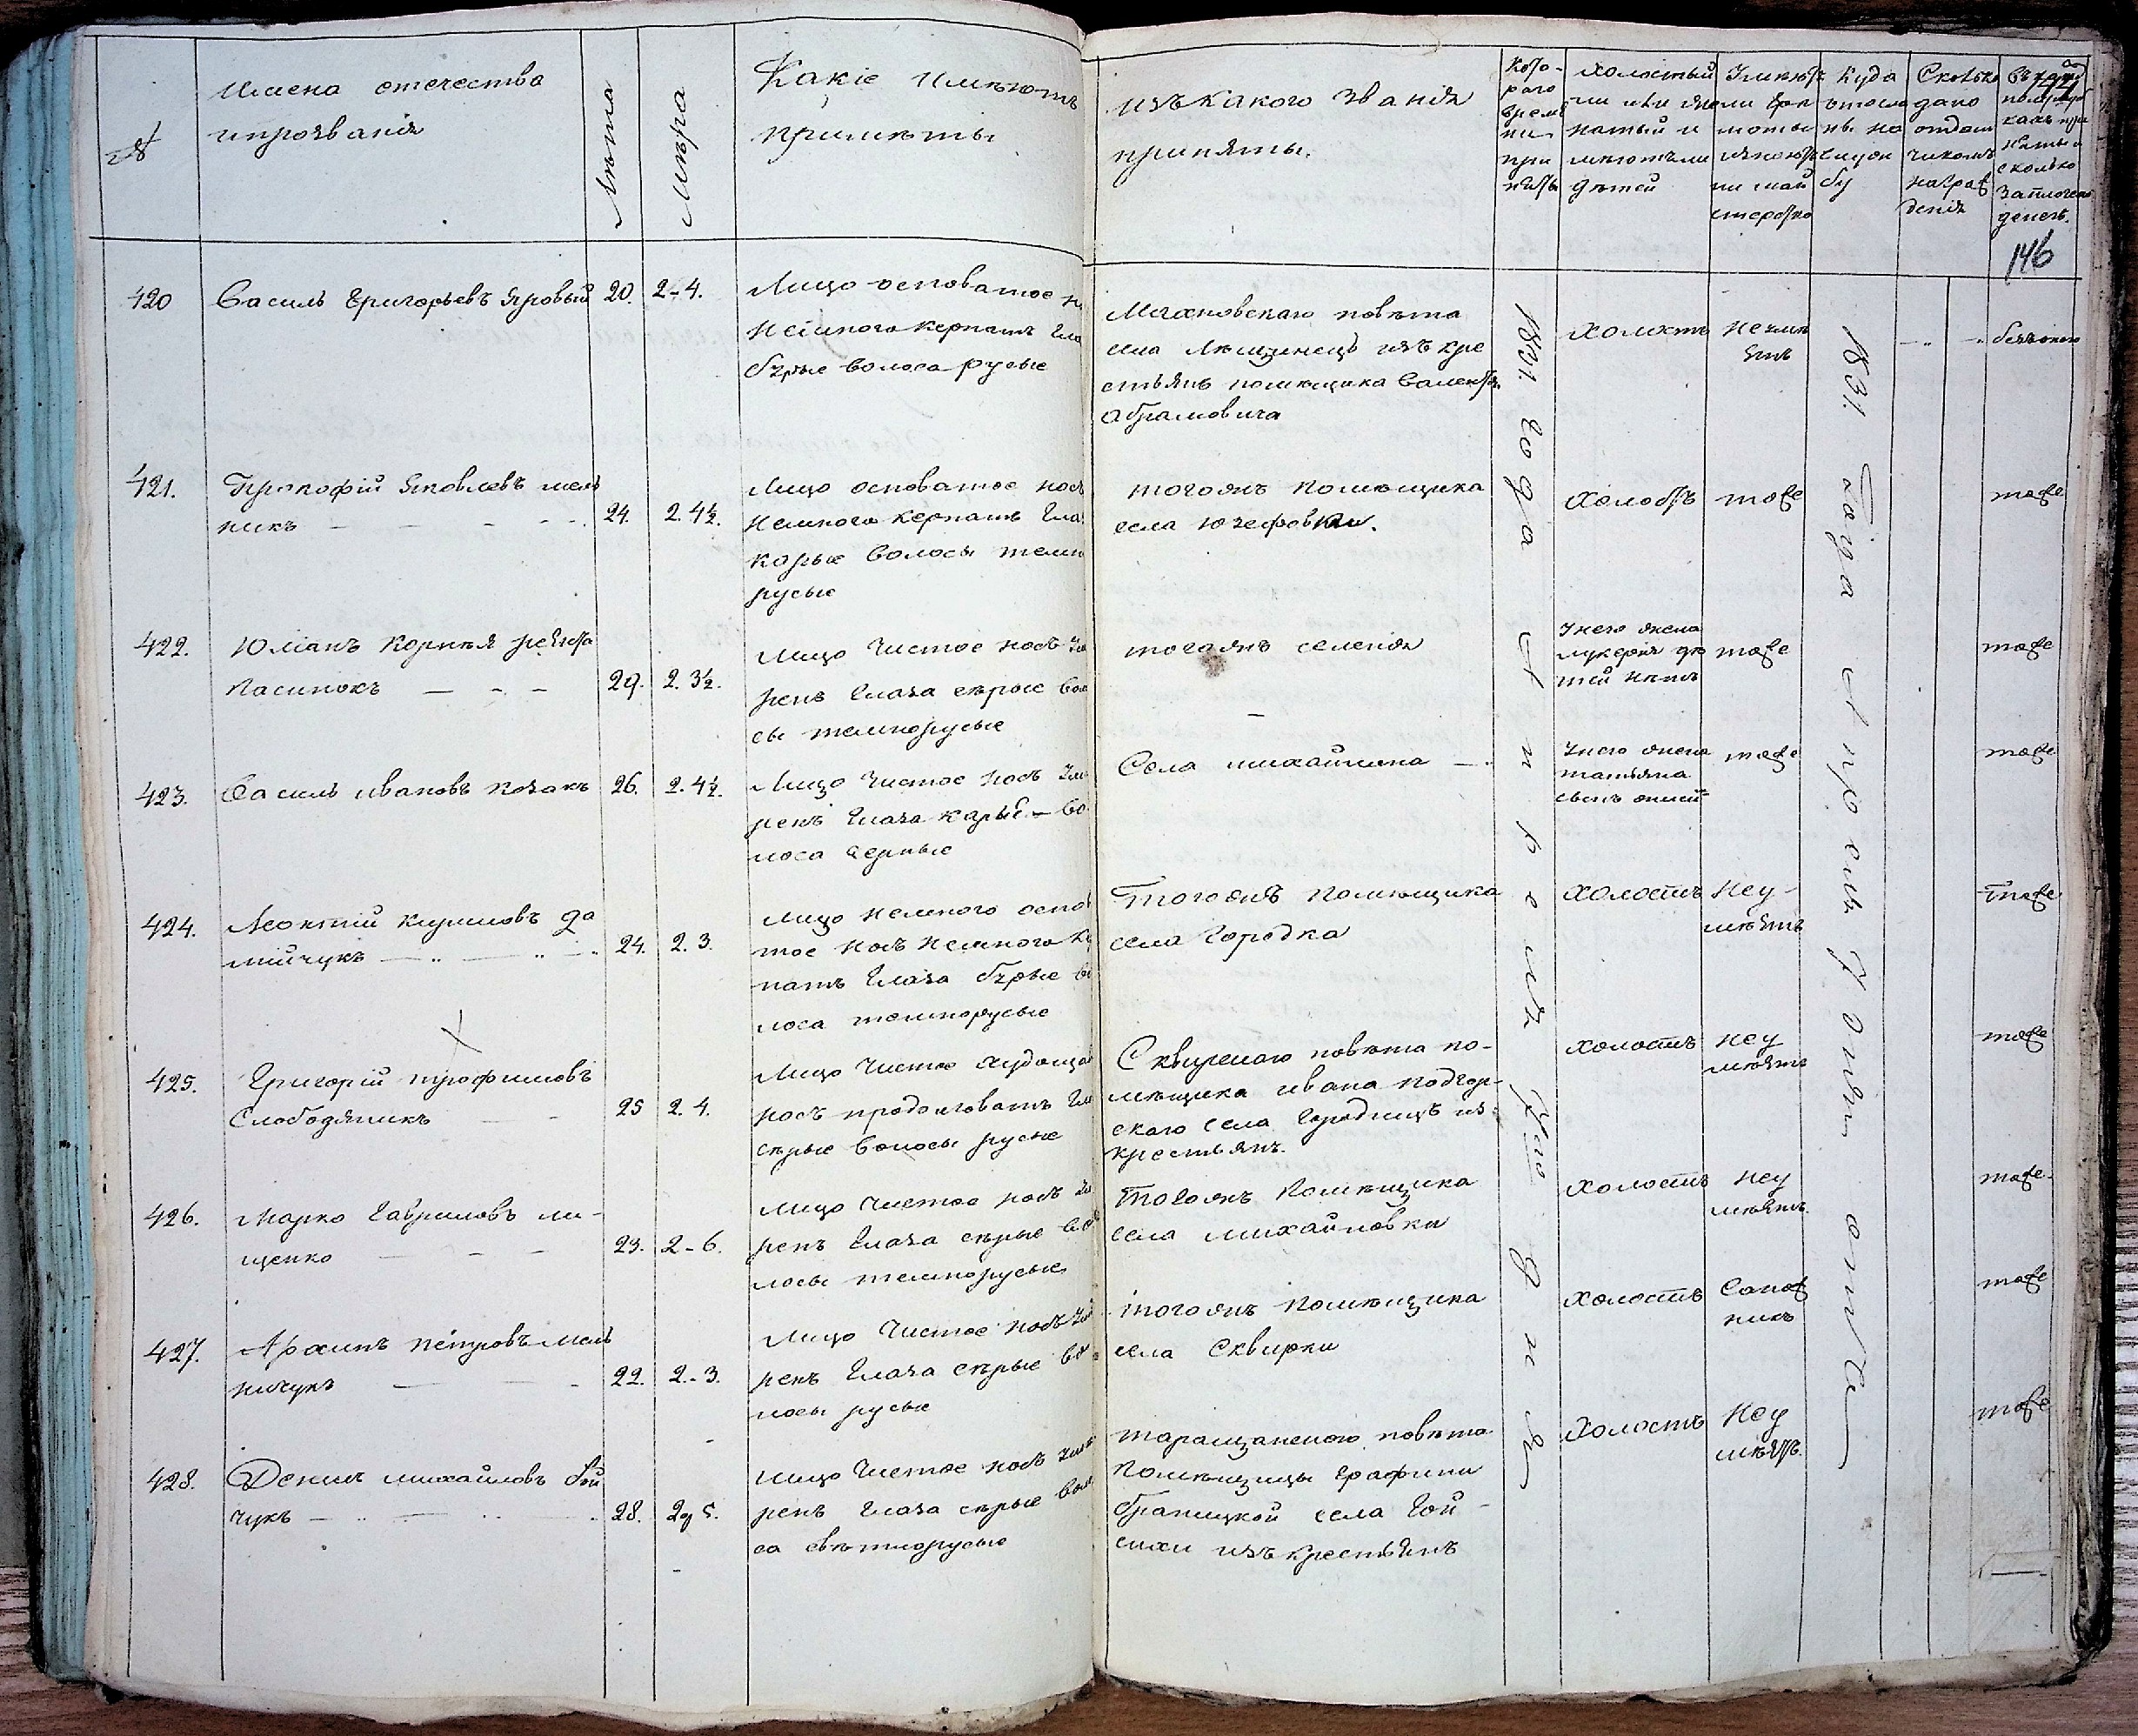 №
Имена отечества
и прозвания
Лѣта
Мѣра
Какіе Имѣютъ
примѣты
изъ какого звания
приняты.
Кото-
раго
време
ни
при
няты
холостый
ли или жо
натый и
имѣютъ ли
дѣтей
Умѣютъ
ли гра
моты
ли май
стерство
Куда
на
служ
бу
Сколько
дано
отдат
чикомъ
награж
денія
сколько
заплочено
денегъ.
144
146
420 Василь Григорьевъ Яровый 20. 2-4. Лицо осповатое
немного керпатъ Гла
бурые волоса русые
Махновскаго повѣта
села Лещинецъ изъ кре
стьянъ помѣщика
Абрамовича
холостъ Неумѣ
ятъ
421. Прокофій Яковлевъ мель
никъ 24. 2. 4½. Лицо осповатое носъ
немного керпатъ Гла
карые Волосы темно
русые
тогожъ помѣщика
села Юзефовки.
Холостъ тоже тоже
422. Юліанъ Корнѣя
Пасинокъ 29. 2. 3½. Лицо Чистое носъ Умѣ
ренъ Глаза сѣрые Воло
сы темнорусые
тогожъ селенія
У него жена
лукерія дѣ
тей нѣтъ
тоже тоже
423. Василь ивановъ козакъ 26. 2. 4½. Лицо Чистое Носъ Умѣ
ренъ Глаза карые Во
лоса черные
Села михайлина
У него жена
татьяна
тоже тоже
424. Леонтій кириловъ да
мійчукъ 24. 2. 3. Лицо немного оспов
тое носъ немного кер
патъ Глаза бурые во
лоса темнорусые
Тогожъ помѣщика
села Городка
холостъ Неу-
мѣятъ
тоже
425. Григорій трофимовъ
Слободяникъ 25 2. 4. Лицо Чистое худощав
носъ продолговатъ Гла
сѣрые Волосы русые
Сквирскаго повѣта по-
мѣщика ивана подгор-
скаго села Городищъ из
крестьянъ.
холостъ Неу
мѣятъ
тоже
426. Марко Гавриловъ ли-
щенко 23. 2-6. Лицо Чистое носъ Умѣ
ренъ Глаза сѣрые Во
лосы темнорусые
Тогожъ помѣщика
села михайловки
холостъ Неу
мѣятъ.
тоже.
427. Архипъ петровъ мель
ничукъ 22. 2-3. Лицо Чистое носъ Умѣ
ренъ Глаза сѣрые Во
лосы русые
тогожъ помѣщика
села Сквирки
холостъ Сапож
никъ
тоже
428. Денисъ михайловъ бой
чукъ 28. 2 5. Лицо Чистое носъ Умѣ
ренъ Глаза сѣрые Воло
са свѣтлорусые
таращанского повѣта
помѣщицы Графини
браницкой села Той
сихи изъ крестьянъ
Холостъ Неу
мѣятъ.
тоже
1831. года
1831. Года